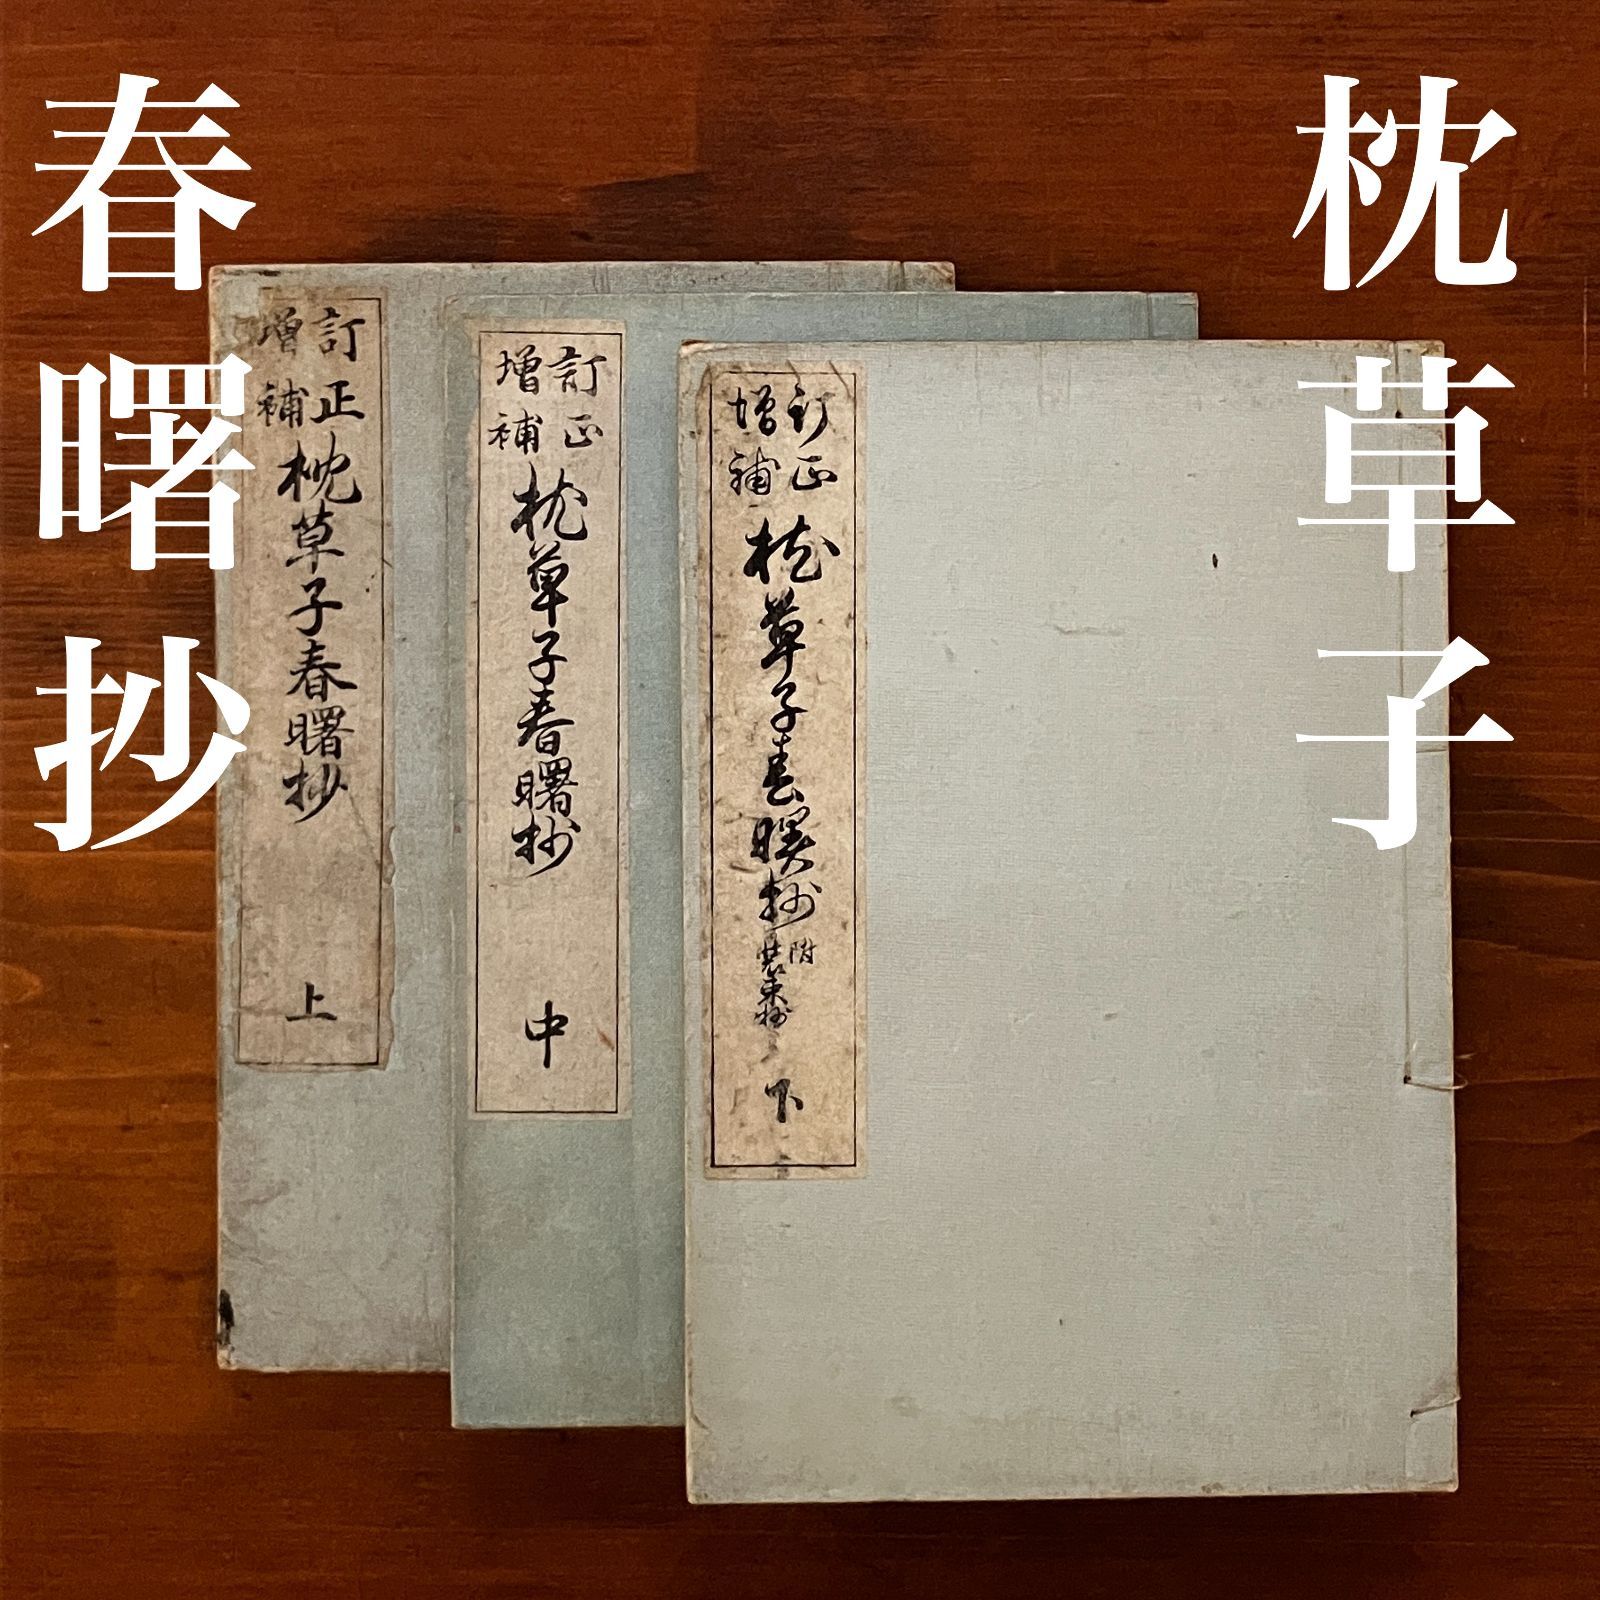 枕草子
春曙抄
訂正
増補
枕草子春曙抄
附
装束抄
下
訂正
増補
枕草子春曙抄
中
訂正
増補
枕草子春曙抄
上